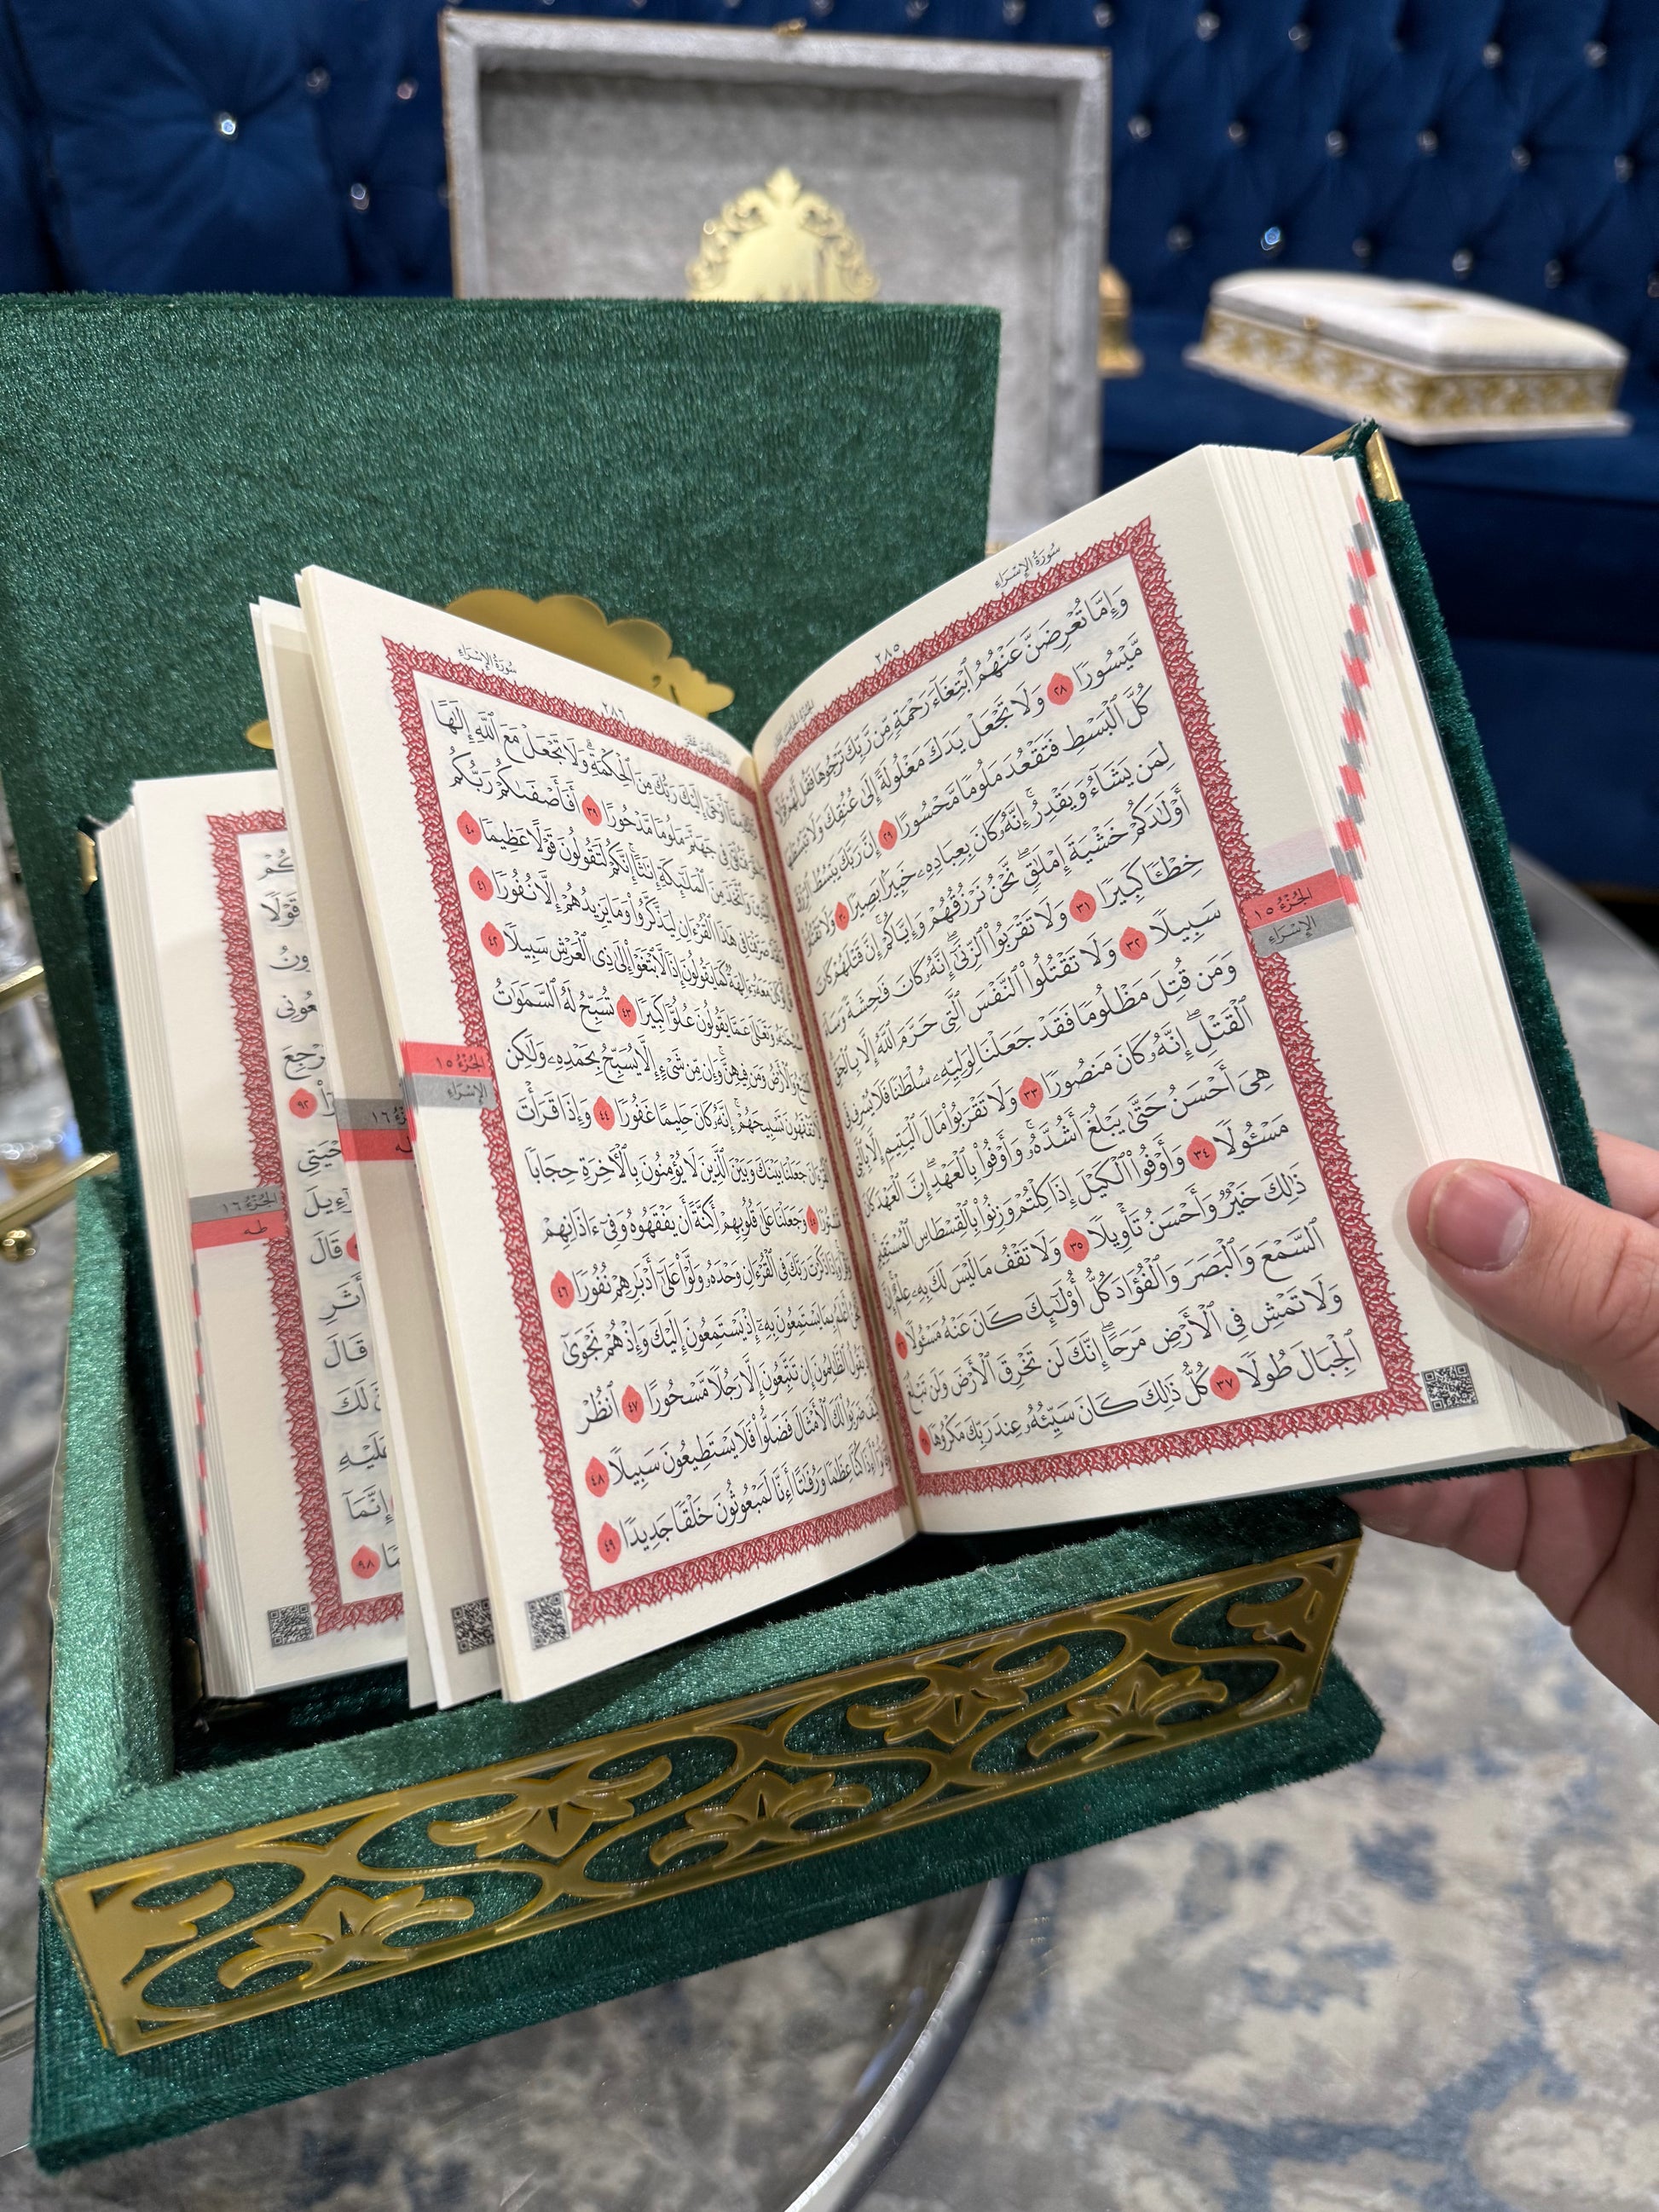 سُورَةُ الإِسْرَاءِ
٢٨٥
وَإِمَّا تُعْرِضَنَّ عَنْهُمُ ٱبْتِغَآءَ رَحْمَةٍ مِّن رَّبِّكَ تَرْجُوهَا فَقُل لَّهُمْ قَوْلًا
مَّيْسُورًا ٢٨ وَلَا تَجْعَلْ يَدَكَ مَغْلُولَةً إِلَىٰ عُنُقِكَ وَلَا تَبْسُطْهَا
كُلَّ ٱلْبَسْطِ فَتَقْعُدَ مَلُومًا مَّحْسُورًا ٢٩ إِنَّ رَبَّكَ يَبْسُطُ ٱلرِّزْقَ
لِمَن يَشَآءُ وَيَقْدِرُ ۚ إِنَّهُۥ كَانَ بِعِبَادِهِۦ خَبِيرًۢا بَصِيرًا ٣٠ وَلَا تَقْتُلُوٓا۟
أَوْلَٰدَكُمْ خَشْيَةَ إِمْلَٰقٍ ۖ نَّحْنُ نَرْزُقُهُمْ وَإِيَّاكُمْ ۚ إِنَّ قَتْلَهُمْ كَانَ
خِطْـًٔا كَبِيرًا ٣١ وَلَا تَقْرَبُوا۟ ٱلزِّنَىٰٓ ۖ إِنَّهُۥ كَانَ فَٰحِشَةً وَسَآءَ
سَبِيلًا ٣٢ وَلَا تَقْتُلُوا۟ ٱلنَّفْسَ ٱلَّتِى حَرَّمَ ٱللَّهُ إِلَّا بِٱلْحَقِّ ۗ
وَمَن قُتِلَ مَظْلُومًا فَقَدْ جَعَلْنَا لِوَلِيِّهِۦ سُلْطَٰنًا فَلَا يُسْرِف فِّى
ٱلْقَتْلِ ۖ إِنَّهُۥ كَانَ مَنصُورًا ٣٣ وَلَا تَقْرَبُوا۟ مَالَ ٱلْيَتِيمِ إِلَّا بِٱلَّتِى
هِىَ أَحْسَنُ حَتَّىٰ يَبْلُغَ أَشُدَّهُۥ ۚ وَأَوْفُوا۟ بِٱلْعَهْدِ ۖ إِنَّ ٱلْعَهْدَ كَانَ
مَسْـُٔولًا ٣٤ وَأَوْفُوا۟ ٱلْكَيْلَ إِذَا كِلْتُمْ وَزِنُوا۟ بِٱلْقِسْطَاسِ ٱلْمُسْتَقِيمِ ۚ
ذَٰلِكَ خَيْرٌ وَأَحْسَنُ تَأْوِيلًا ٣٥ وَلَا تَقْفُ مَا لَيْسَ لَكَ بِهِۦ عِلْمٌ ۚ إِنَّ
ٱلسَّمْعَ وَٱلْبَصَرَ وَٱلْفُؤَادَ كُلُّ أُو۟لَٰٓئِكَ كَانَ عَنْهُ مَسْـُٔولًا ٣٦
وَلَا تَمْشِ فِى ٱلْأَرْضِ مَرَحًا ۖ إِنَّكَ لَن تَخْرِقَ ٱلْأَرْضَ وَلَن تَبْلُغَ
ٱلْجِبَالَ طُولًا ٣٧ كُلُّ ذَٰلِكَ كَانَ سَيِّئُهُۥ عِندَ رَبِّكَ مَكْرُوهًا ٣٨
الجُزْءُ ١٥
الإِسْرَاء
سُورَةُ الإِسْرَاءِ
٢٨٦
ذَٰلِكَ مِمَّآ أَوْحَىٰٓ إِلَيْكَ رَبُّكَ مِنَ ٱلْحِكْمَةِ ۗ وَلَا تَجْعَلْ مَعَ ٱللَّهِ إِلَٰهًا
ءَاخَرَ فَتُلْقَىٰ فِى جَهَنَّمَ مَلُومًا مَّدْحُورًا ٣٩ أَفَأَصْفَىٰكُمْ رَبُّكُم
بِٱلْبَنِينَ وَٱتَّخَذَ مِنَ ٱلْمَلَٰٓئِكَةِ إِنَٰثًا ۚ إِنَّكُمْ لَتَقُولُونَ قَوْلًا عَظِيمًا ٤٠
وَلَقَدْ صَرَّفْنَا فِى هَٰذَا ٱلْقُرْءَانِ لِيَذَّكَّرُوا۟ وَمَا يَزِيدُهُمْ إِلَّا نُفُورًا ٤١
قُل لَّوْ كَانَ مَعَهُۥٓ ءَالِهَةٌ كَمَا يَقُولُونَ إِذًا لَّٱبْتَغَوْا۟ إِلَىٰ ذِى ٱلْعَرْشِ سَبِيلًا ٤٢
سُبْحَٰنَهُۥ وَتَعَٰلَىٰ عَمَّا يَقُولُونَ عُلُوًّا كَبِيرًا ٤٣ تُسَبِّحُ لَهُ ٱلسَّمَٰوَٰتُ
ٱلسَّبْعُ وَٱلْأَرْضُ وَمَن فِيهِنَّ ۚ وَإِن مِّن شَىْءٍ إِلَّا يُسَبِّحُ بِحَمْدِهِۦ وَلَٰكِن
لَّا تَفْقَهُونَ تَسْبِيحَهُمْ ۗ إِنَّهُۥ كَانَ حَلِيمًا غَفُورًا ٤٤ وَإِذَا قَرَأْتَ
ٱلْقُرْءَانَ جَعَلْنَا بَيْنَكَ وَبَيْنَ ٱلَّذِينَ لَا يُؤْمِنُونَ بِٱلْءَاخِرَةِ حِجَابًا
مَّسْتُورًا ٤٥ وَجَعَلْنَا عَلَىٰ قُلُوبِهِمْ أَكِنَّةً أَن يَفْقَهُوهُ وَفِىٓ ءَاذَانِهِمْ
وَقْرًا ۚ وَإِذَا ذَكَرْتَ رَبَّكَ فِى ٱلْقُرْءَانِ وَحْدَهُۥ وَلَّوْا۟ عَلَىٰٓ أَدْبَٰرِهِمْ نُفُورًا ٤٦
نَّحْنُ أَعْلَمُ بِمَا يَسْتَمِعُونَ بِهِۦٓ إِذْ يَسْتَمِعُونَ إِلَيْكَ وَإِذْ هُمْ نَجْوَىٰٓ
إِذْ يَقُولُ ٱلظَّٰلِمُونَ إِن تَتَّبِعُونَ إِلَّا رَجُلًا مَّسْحُورًا ٤٧ ٱنظُرْ
كَيْفَ ضَرَبُوا۟ لَكَ ٱلْأَمْثَالَ فَضَلُّوا۟ فَلَا يَسْتَطِيعُونَ سَبِيلًا ٤٨
وَقَالُوٓا۟ أَءِذَا كُنَّا عِظَٰمًا وَرُفَٰتًا أَءِنَّا لَمَبْعُوثُونَ خَلْقًا جَدِيدًا ٤٩
الجُزْءُ ١٥
الإِسْرَاء
١٦
قَوْلًا
٩٢
قَالَ
قَالَ
لَكَ
إِنَّمَآ
٩٨
الجُزْءُ ١٦
طه